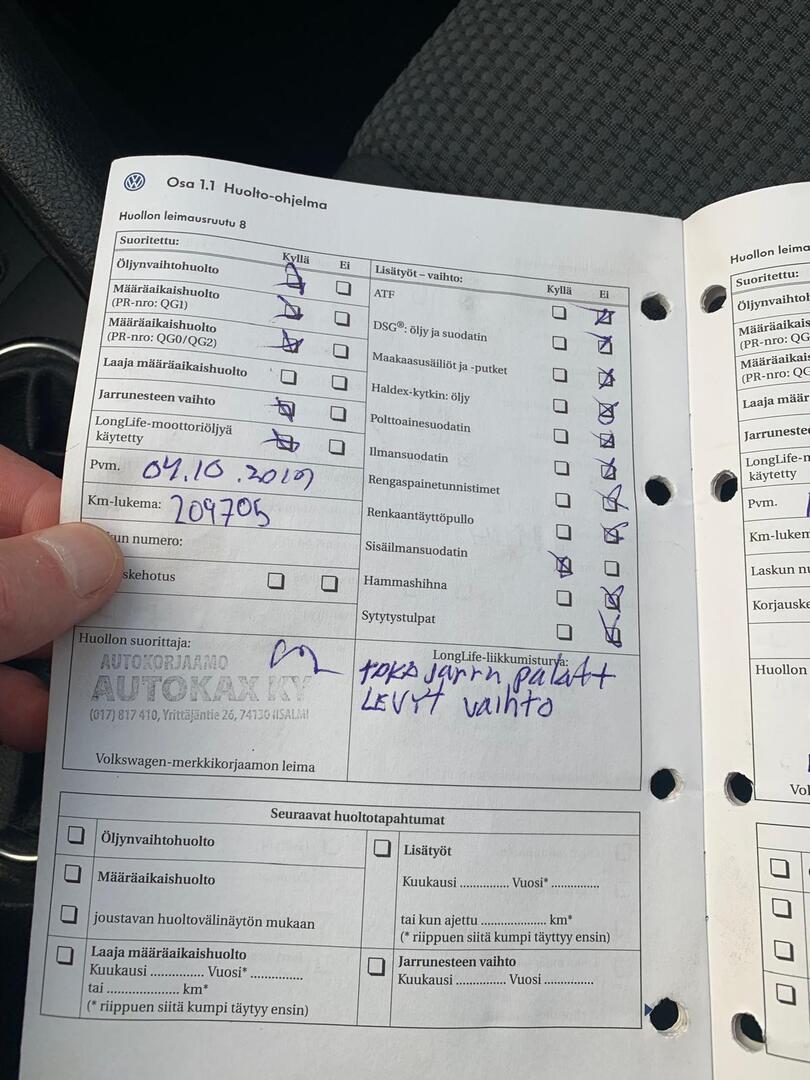 Osa 1.1 Huolto-ohjelma
Huollon leimausruutu 8
Suoritettu:
Kyllä Ei
Öljynvaihtohuolto
Määräaikaishuolto
(PR-nro: QG1)
Määräaikaishuolto
(PR-nro: QG0/QG2)
Laaja määräaikaishuolto
Jarrunesteen vaihto
LongLife-moottoriöljyä
käytetty
Pvm. 04.10.2019
Km-lukema: 209705
un numero:
skehotus
Lisätyöt – vaihto:
Kyllä Ei
ATF
DSG®: öljy ja suodatin
Maakaasusäiliöt ja -putket
Haldex-kytkin: öljy
Polttoainesuodatin
Ilmansuodatin
Rengaspainetunnistimet
Renkaantäyttöpullo
Sisäilmansuodatin
Hammashihna
Sytytystulpat
Huollon suorittaja:
AUTOKORJAAMO
AUTOKAX KY
(017) 817 410, Yrittäjäntie 26, 74130 IISALMI
Volkswagen-merkkikorjaamon leima
LongLife-liikkumisturva:
TAKA Jarru palat+
LEVYT vaihto
Seuraavat huoltotapahtumat
Öljynvaihtohuolto
Määräaikaishuolto
joustavan huoltovälinäytön mukaan
Laaja määräaikaishuolto
Kuukausi ............... Vuosi* ...............
tai .................... km*
(* riippuen siitä kumpi täytyy ensin)
Lisätyöt
Kuukausi .............. Vuosi* ..............
tai kun ajettu .................. km*
(* riippuen siitä kumpi täyttyy ensin)
Jarrunesteen vaihto
Kuukausi .............. Vuosi ..............
Huollon leima
Suoritettu:
Öljynvaihtohu
Määräaikaishu
(PR-nro: QG
Määräaikaish
(PR-nro: QG
Laaja määr
Jarrunestee
LongLife-m
käytetty
Pvm.
Km-lukem
Laskun nu
Korjauske
Huollon
Vol